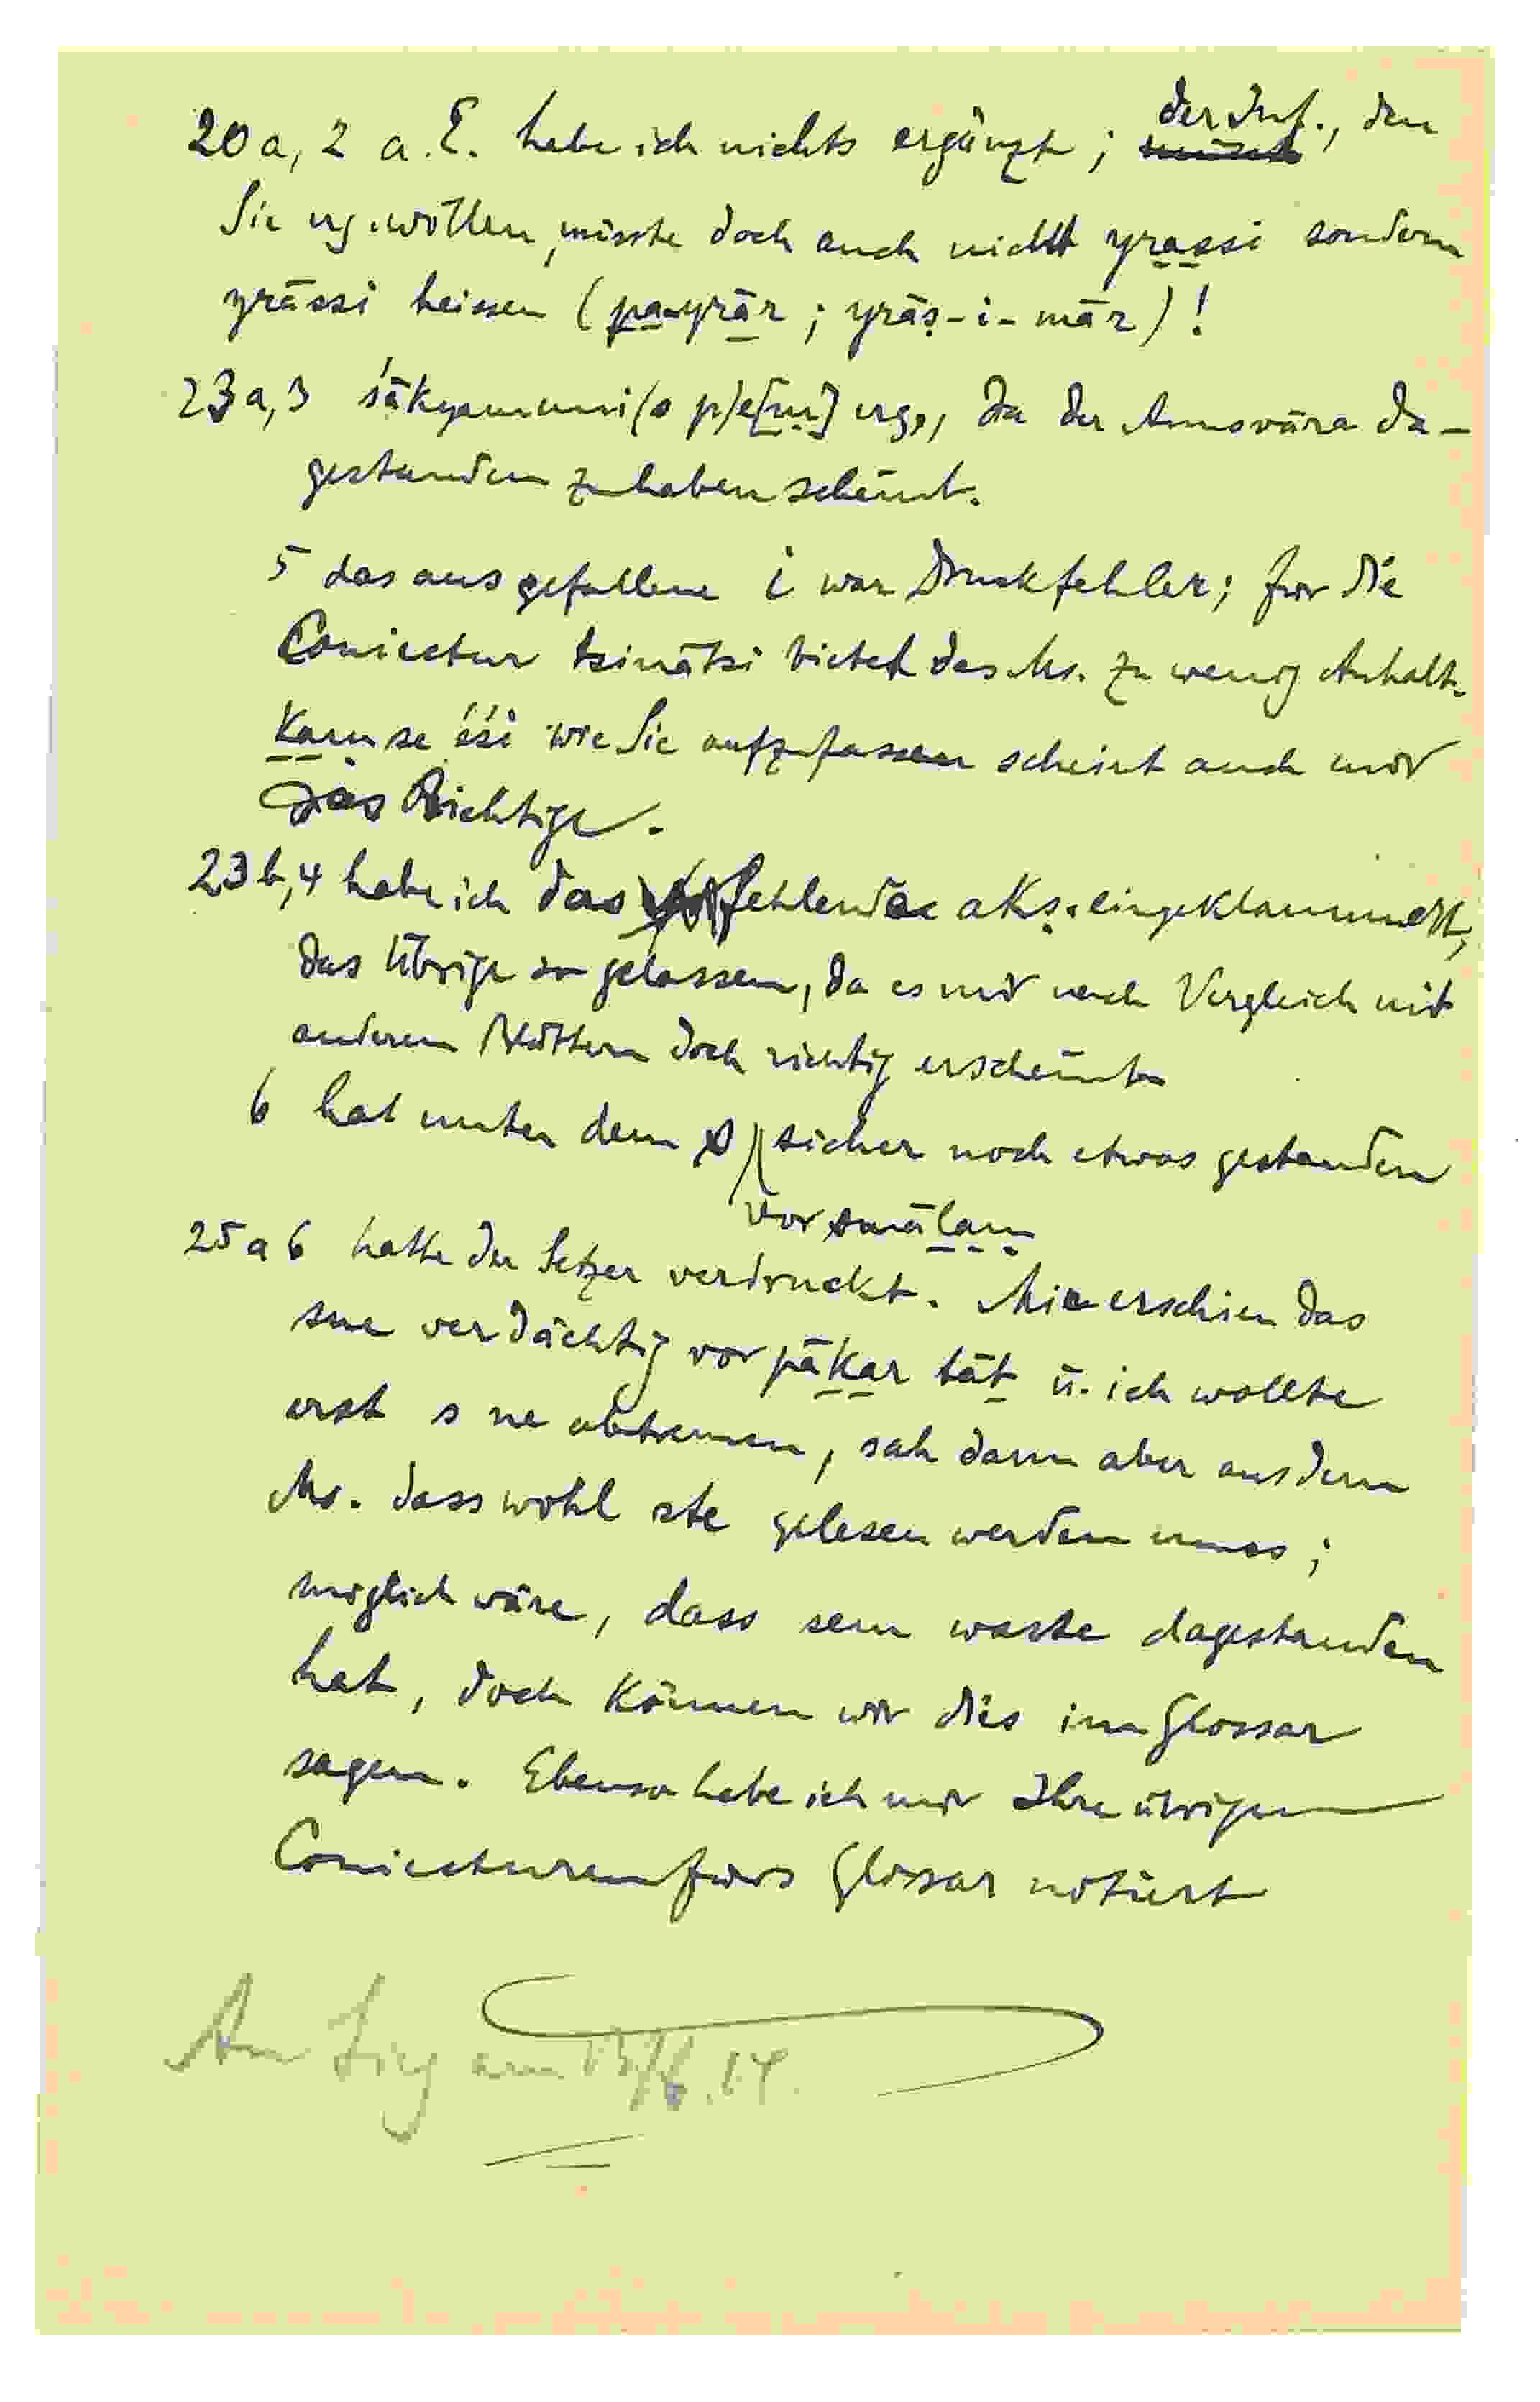 20a, 2 a. E. habe ich nichts ergänzt; der Inf., den
Sie erg. wollen, müsste doch auch nicht yr̲a̲ssi sondern
yrāssi heissen (p̲a̲-yrā̲r; yrāṣ-i-mār)!
23a,3 śākyamuni(s p)e[ṃ] erg., da der Anusvāra da-
gestanden zu haben scheint.
5 das ausgefallene i war Druckfehler; für die
Coniectur tsinātsi bietet das Ms. zu wenig Anhalt.
k̲a̲ṃse śśi wie Sie aufzufassen scheint auch mir
das Richtige.
23b,4 habe ich das fehlende akṣ. eingeklammert,
das Übrige so gelassen, da es mir nach Vergleich mit
anderen Blättern doch richtig erscheint
6 hat unter dem s sicher noch etwas gestanden
vor smāl̲a̲ṃ̲
25a6 hatte der Setzer verdruckt. Mir erschien das
sne verdächtig vor pāk̲a̲r tāt̲ u. ich wollte
erst s ne abtrennen, sah dann aber aus dem
Ms. dass wohl ste gelesen werden muss;
möglich wäre, dass sem waste dagestanden
hat, doch können wir dies im Glossar
sagen. Ebenso habe ich mir Ihre übrigen
Coniecturen fürs Glossar notiert
An Sieg am 13/8.14.